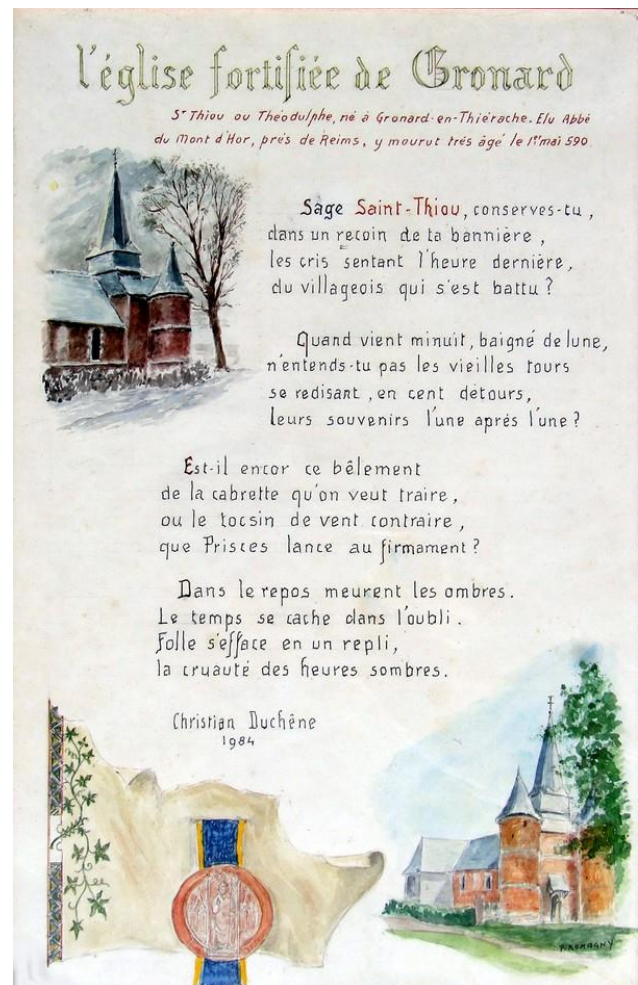 l'église fortifiée de Gronard
St Thiou ou Théodulphe, né à Gronard-en-Thiérache. Elu Abbé
du Mont d'Hor, prés de Reims, y mourut trés âgé le 1er mai 590.
Sage Saint-Thiou, conserves-tu,
dans un recoin de ta bannière,
les cris sentant l'heure dernière,
du villageois qui s'est battu ?
Quand vient minuit, baigné de lune,
n'entends-tu pas les vieilles tours
se redisant, en cent détours,
leurs souvenirs l'une aprés l'une ?
Est-il encor ce bêlement
de la cabrette qu'on veut traire,
ou le tocsin de vent contraire,
que Prisces lance au firmament ?
Dans le repos meurent les ombres.
Le temps se cache dans l'oubli.
Folle s'efface en un repli,
la cruauté des heures sombres.
Christian Duchêne
1984
P. ROMAGNY